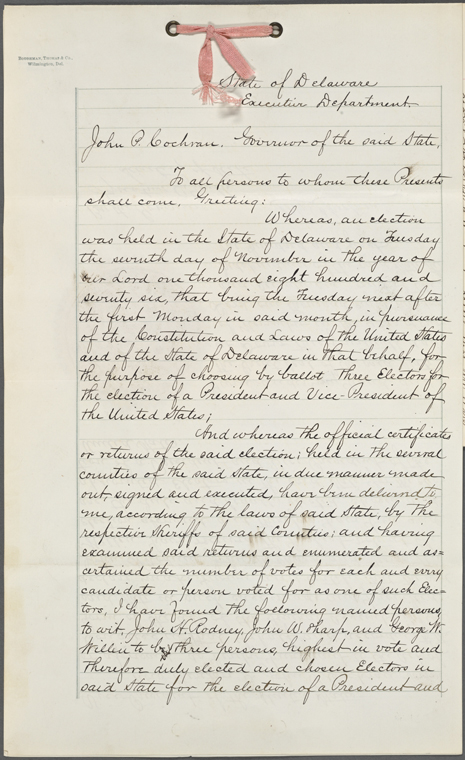 BONEHAM, THOMAS & CO.,
Wilmington, Del.
State of Delaware
Executive Department.
John P. Cochran. Governor of the said State,
To all persons to whom these Presents
shall come, Greeting:
Whereas, an election
was held in the State of Delaware on Tuesday
the seventh day of November in the year of
our Lord one thousand eight hundred and
seventy six, that being the Tuesday next after
the first Monday in said month, in pursuance
of the Constitution and Laws of the United States
and of the State of Delaware in that behalf, for
the purpose of choosing by ballot three Electors for
the election of a President and Vice-President of
the United States;
And whereas the official certificates
or returns of the said election; held in the several
counties of the said State, in due manner made
out signed and executed, have been delivered to
me, according to the laws of said State, by the
respective Sheriffs of said Counties; and having
examined said returns and enumerated and as=
certained the number of votes for each and every
candidate or person voted for as one of such Elec=
tors, I have found the following named persons,
to wit, John H. Rodney, John W. Sharp, and George W.
Willin to be the three persons, highest in vote and
therefore duly elected and chosen Electors in
said State for the election of a President and